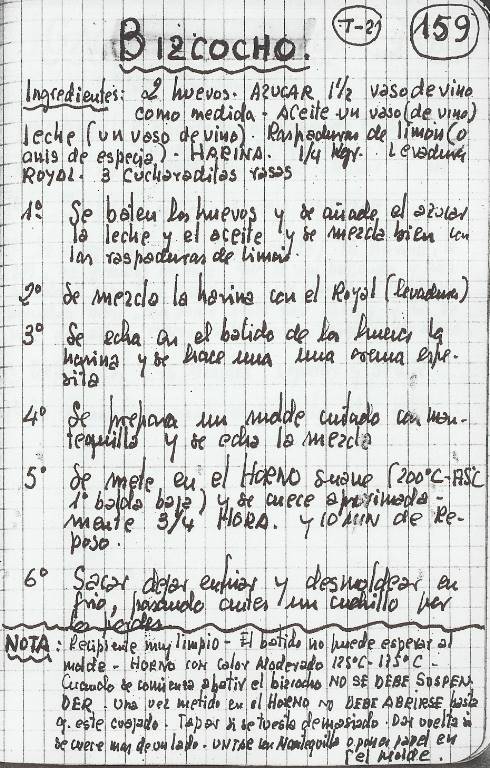 T-21
159
BIZCOCHO.
Ingredientes: 2 huevos. AZUCAR 1½ vaso de vino
como medida - Aceite un vaso (de vino)
leche (un vaso de vino). Raspaduras de limon (o
anis de especia) - HARINA. 1/4 Kgr. Levadura
ROYAL. 3 Cucharaditas rasas
1º Se baten los huevos y se añade el azucar
la leche y el aceite y se mezcla bien con
las raspaduras de limon.
2º Se mezcla la harina con el Royal (levadura)
3º Se echa en el batido de los huevos la
harina y se hace una crema espe-
sita
4º Se prepara un molde untado con man-
tequilla y se echa la mezcla
5º Se mete en el HORNO suave (200ºC-ASC
1ª balda baja) y se cuece aproximada-
mente 3/4 HORA. y 10 MIN de Re-
poso.
6º Sacar dejar enfriar y desmoldear en
frio, pasando antes un cuchillo por
las paredes
NOTA: Recipiente muy limpio - El batido no puede esperar al
molde - HORNO con calor Moderado 125ºC-175ºC -
Cuando se comienza a batir el bizcocho NO SE DEBE SUSPEN
DER - una vez metido en el HORNO NO DEBE ABRIRSE hasta
q. este cuajado - Tapar si se tuesta demasiado. Dar vuelta si
se cuece mas de un lado - UNTAR con Mantequilla o poner papel en
el molde.